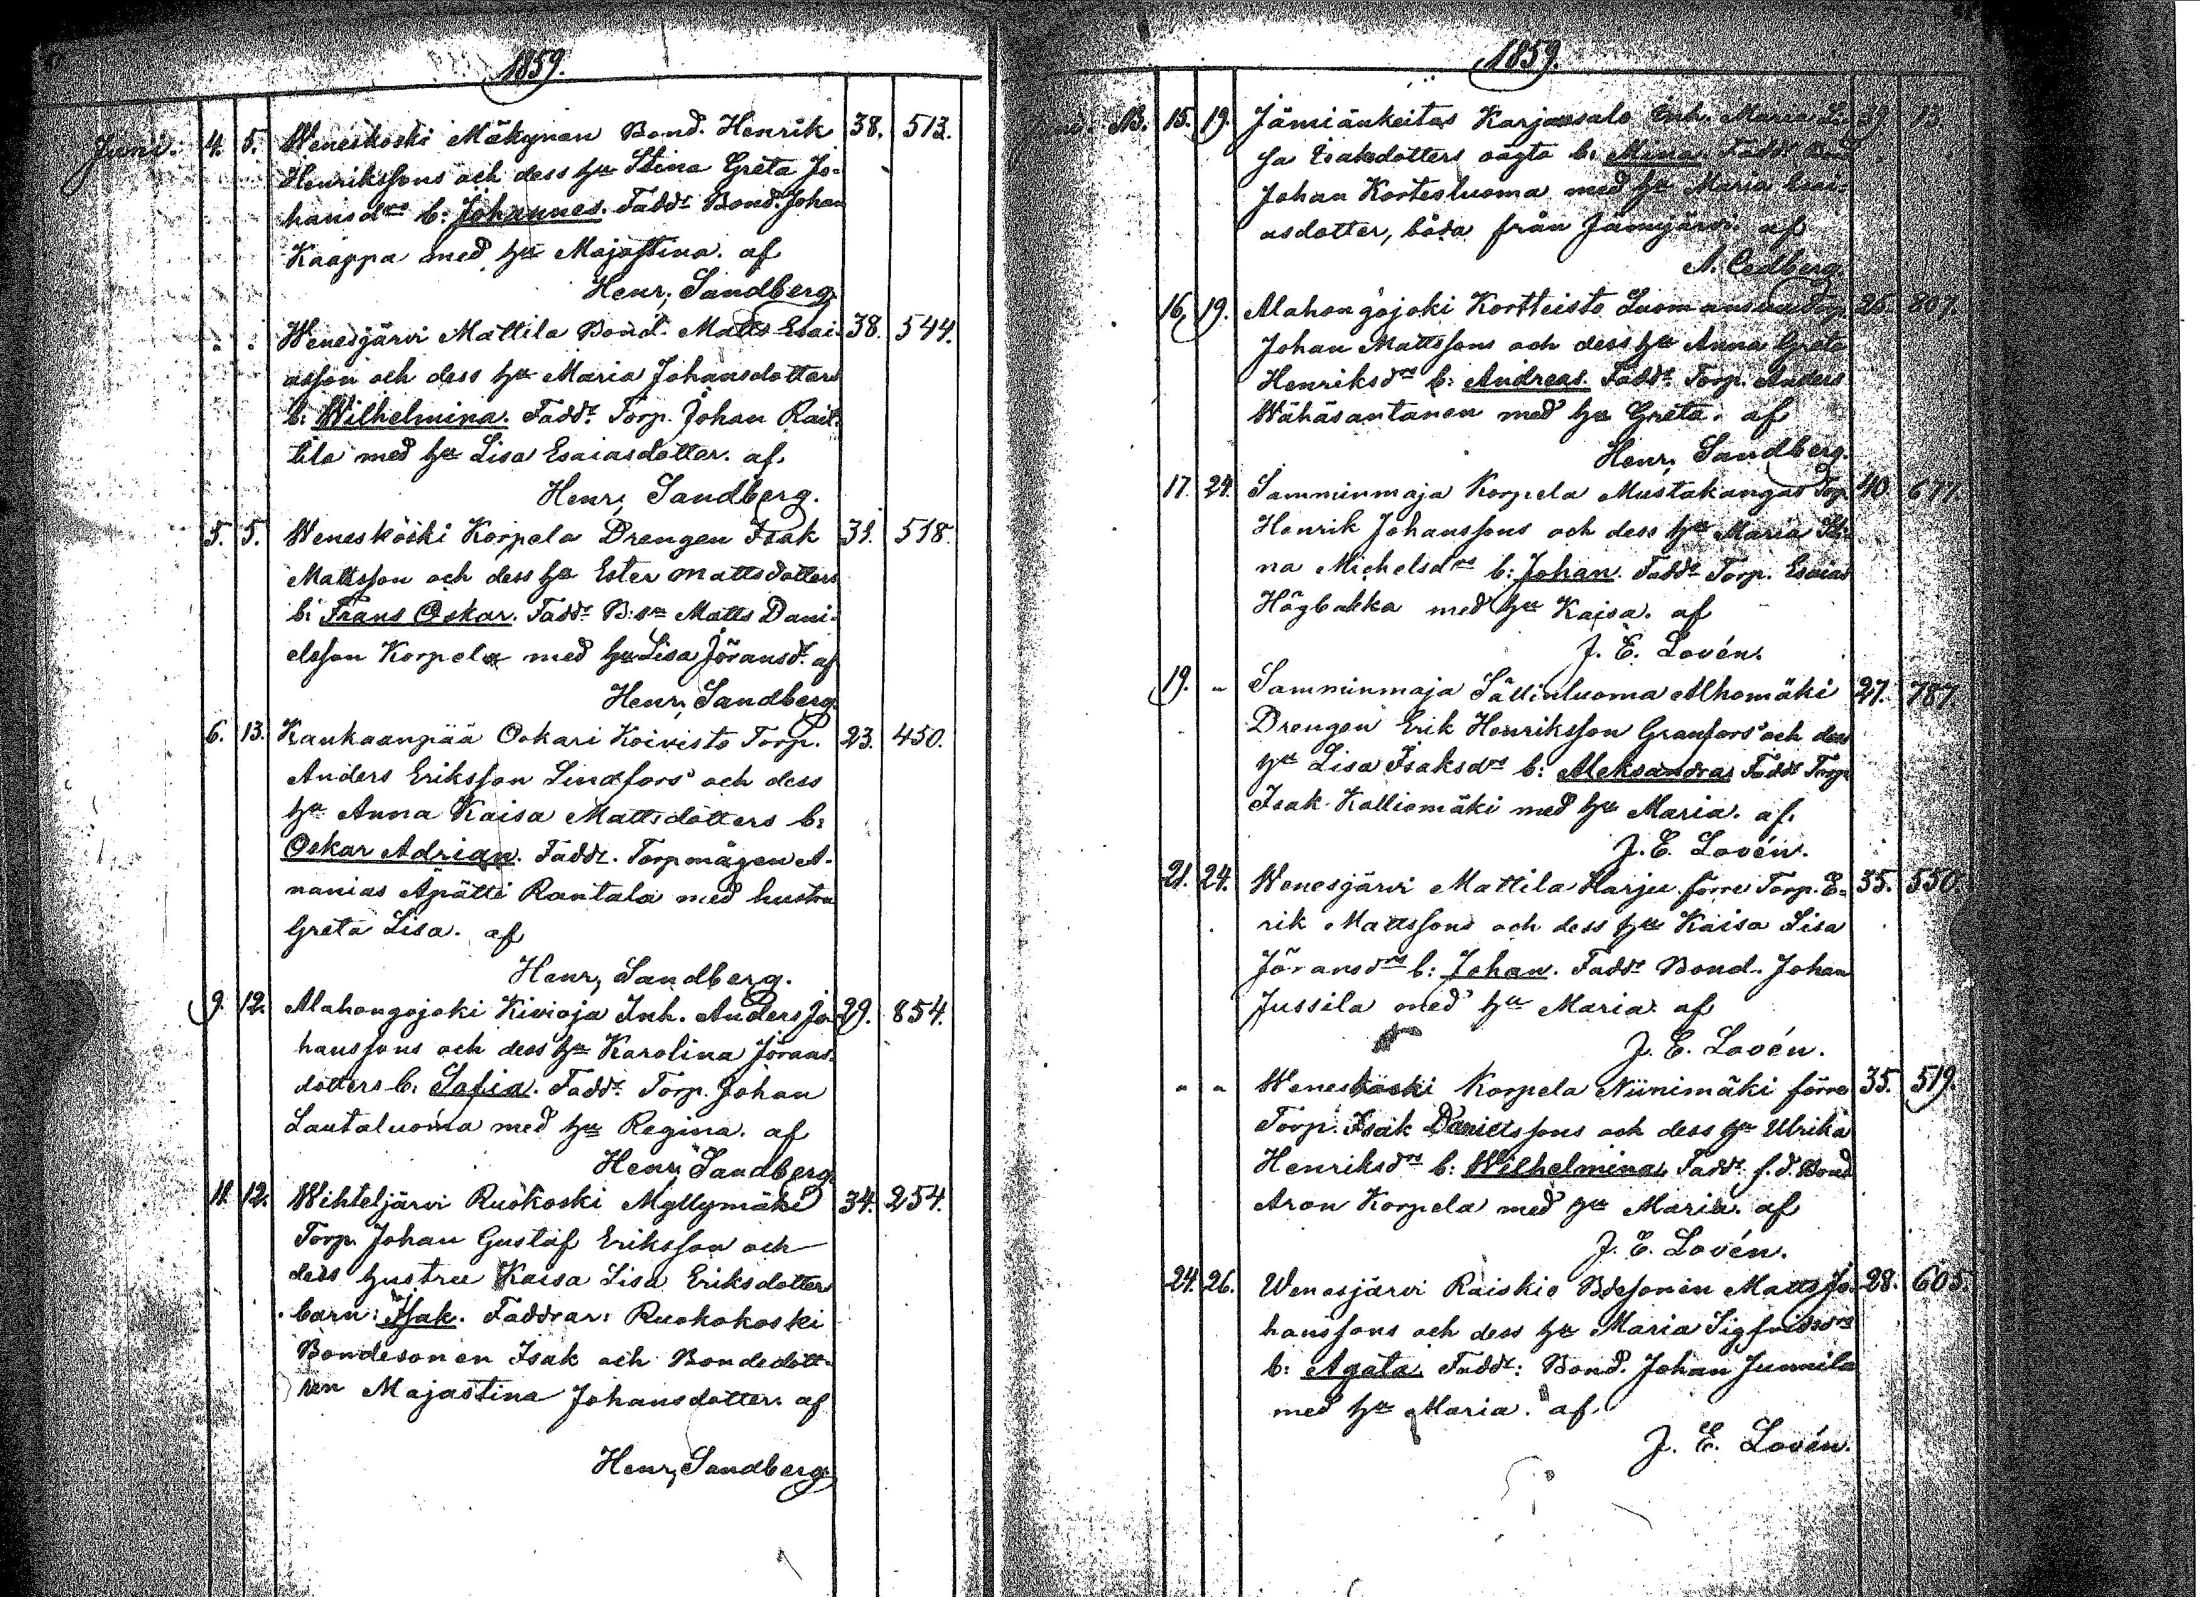 1859.
Juni. 4. 5. Weneskoski Mäkynen Bond. Henrik 38. 513.
Henrikssons och dess hu Stina Greta Jo-
hansdrs b: Johannes. Faddr Bond. Johan
Kaappa med hu Majastina. af
Henr. Sandberg.
" " Wenesjärvi Mattila Bond. Matts Esai- 38. 544.
asson och dess hu Maria Johansdotters
b: Wilhelmina. Faddr. Torp. Johan Rait-
tila med hu Lisa Esaiasdotter. af.
Henr. Sandberg.
5. 5. Weneskoski Korpela Drengen Isak 31. 518.
Mattsson och dess hu Ester Mattsdotters
b: Frans Oskar. Faddr B:sn Matts Dani-
elsson Korpela med hu Lisa Jöransd. af
Henr. Sandberg.
6. 13. Kankaanpää Oskari Koivisto Torp. 23. 450.
Anders Eriksson Lindfors' och dess
hu Anna Kaisa Mattsdotters b:
Oskar Adrian. Faddr. Torpmågen A-
nanias Äpätti Rantala med hustru
Greta Lisa. af
Henr. Sandberg.
9. 12. Alahongojoki Kivioja Inh. Anders Jo- 29. 854.
hanssons och dess hu Karolina Jörans-
dotters b. Sofia. Faddr. Torp. Johan
Lautaluoma med hu Regina. af
Henr. Sandberg.
11. 12. Wihteljärvi Ruokoski Myllymäki 34. 254.
Torp. Johan Gustaf Eriksson och
dess hustru Kaisa Lisa Eriksdotter
barn: Isak. Faddrar: Ruokokoski
Bondesonen Isak och Bondedott-
ren Majastina Johansdotter. af
Henr. Sandberg.
1859.
15. 19. Jämiänkeitas Karjansalo Inh. Maria Li- 13.
sa Esaksdotters oägta b: Mina. Faddr Bond
Johan Kortesluoma med hu Maria Esai-
asdotter, båda från Jämijärvi. af
A. Cedberg.
16. 19. Alahongojoki Kortteisto Luomansuu Torp. 26. 807.
Johan Mattssons och dess hu Anna Greta
Henriksdrs b: Andreas. Faddr. Torp. Anders
Wähäsantanen med hu Greta. af
Henr. Sandberg.
17. 24. Samminmaja Korpela Mustakangas Torp. 40. 677.
Henrik Johanssons och dess hu Maria Sti-
na Michelsdrs b: Johan. Faddr Torp. Esaias
Högbakka med hu Kaisa. af
J. E. Lovén.
19. " Samminmaja Sällinluoma Alhomäki 27. 787.
Drengen Erik Henriksson Granfors' och dess
hu Lisa Isaksdrs b: Aleksandra. Faddr Torp.
Isak Kalliomäki med hu Maria. af.
J. E. Lovén.
21. 24. Wenesjärvi Mattila Harju förre Torp. E- 35. 550.
rik Mattssons och dess hu Kaisa Lisa
Jöransdrs b: Johan. Faddr Bond. Johan
Jussila med hu Maria. af
J. E. Lovén.
" " Weneskoski Korpela Niinimäki förre 35. 519.
Torp. Isak Danielssons och dess hu Ulrika
Henriksdrs b: Wilhelmina. Faddr. f.d. Bond
Aron Korpela med hu Maria. af
J. E. Lovén.
24. 26. Wenesjärvi Raiskio Bdesonen Matts Jo- 28. 605.
hanssons och dess hu Maria Sigfridsdrs
b: Agata. Faddr: Bond. Johan Junnila
med hu Maria. af.
J. E. Lovén.